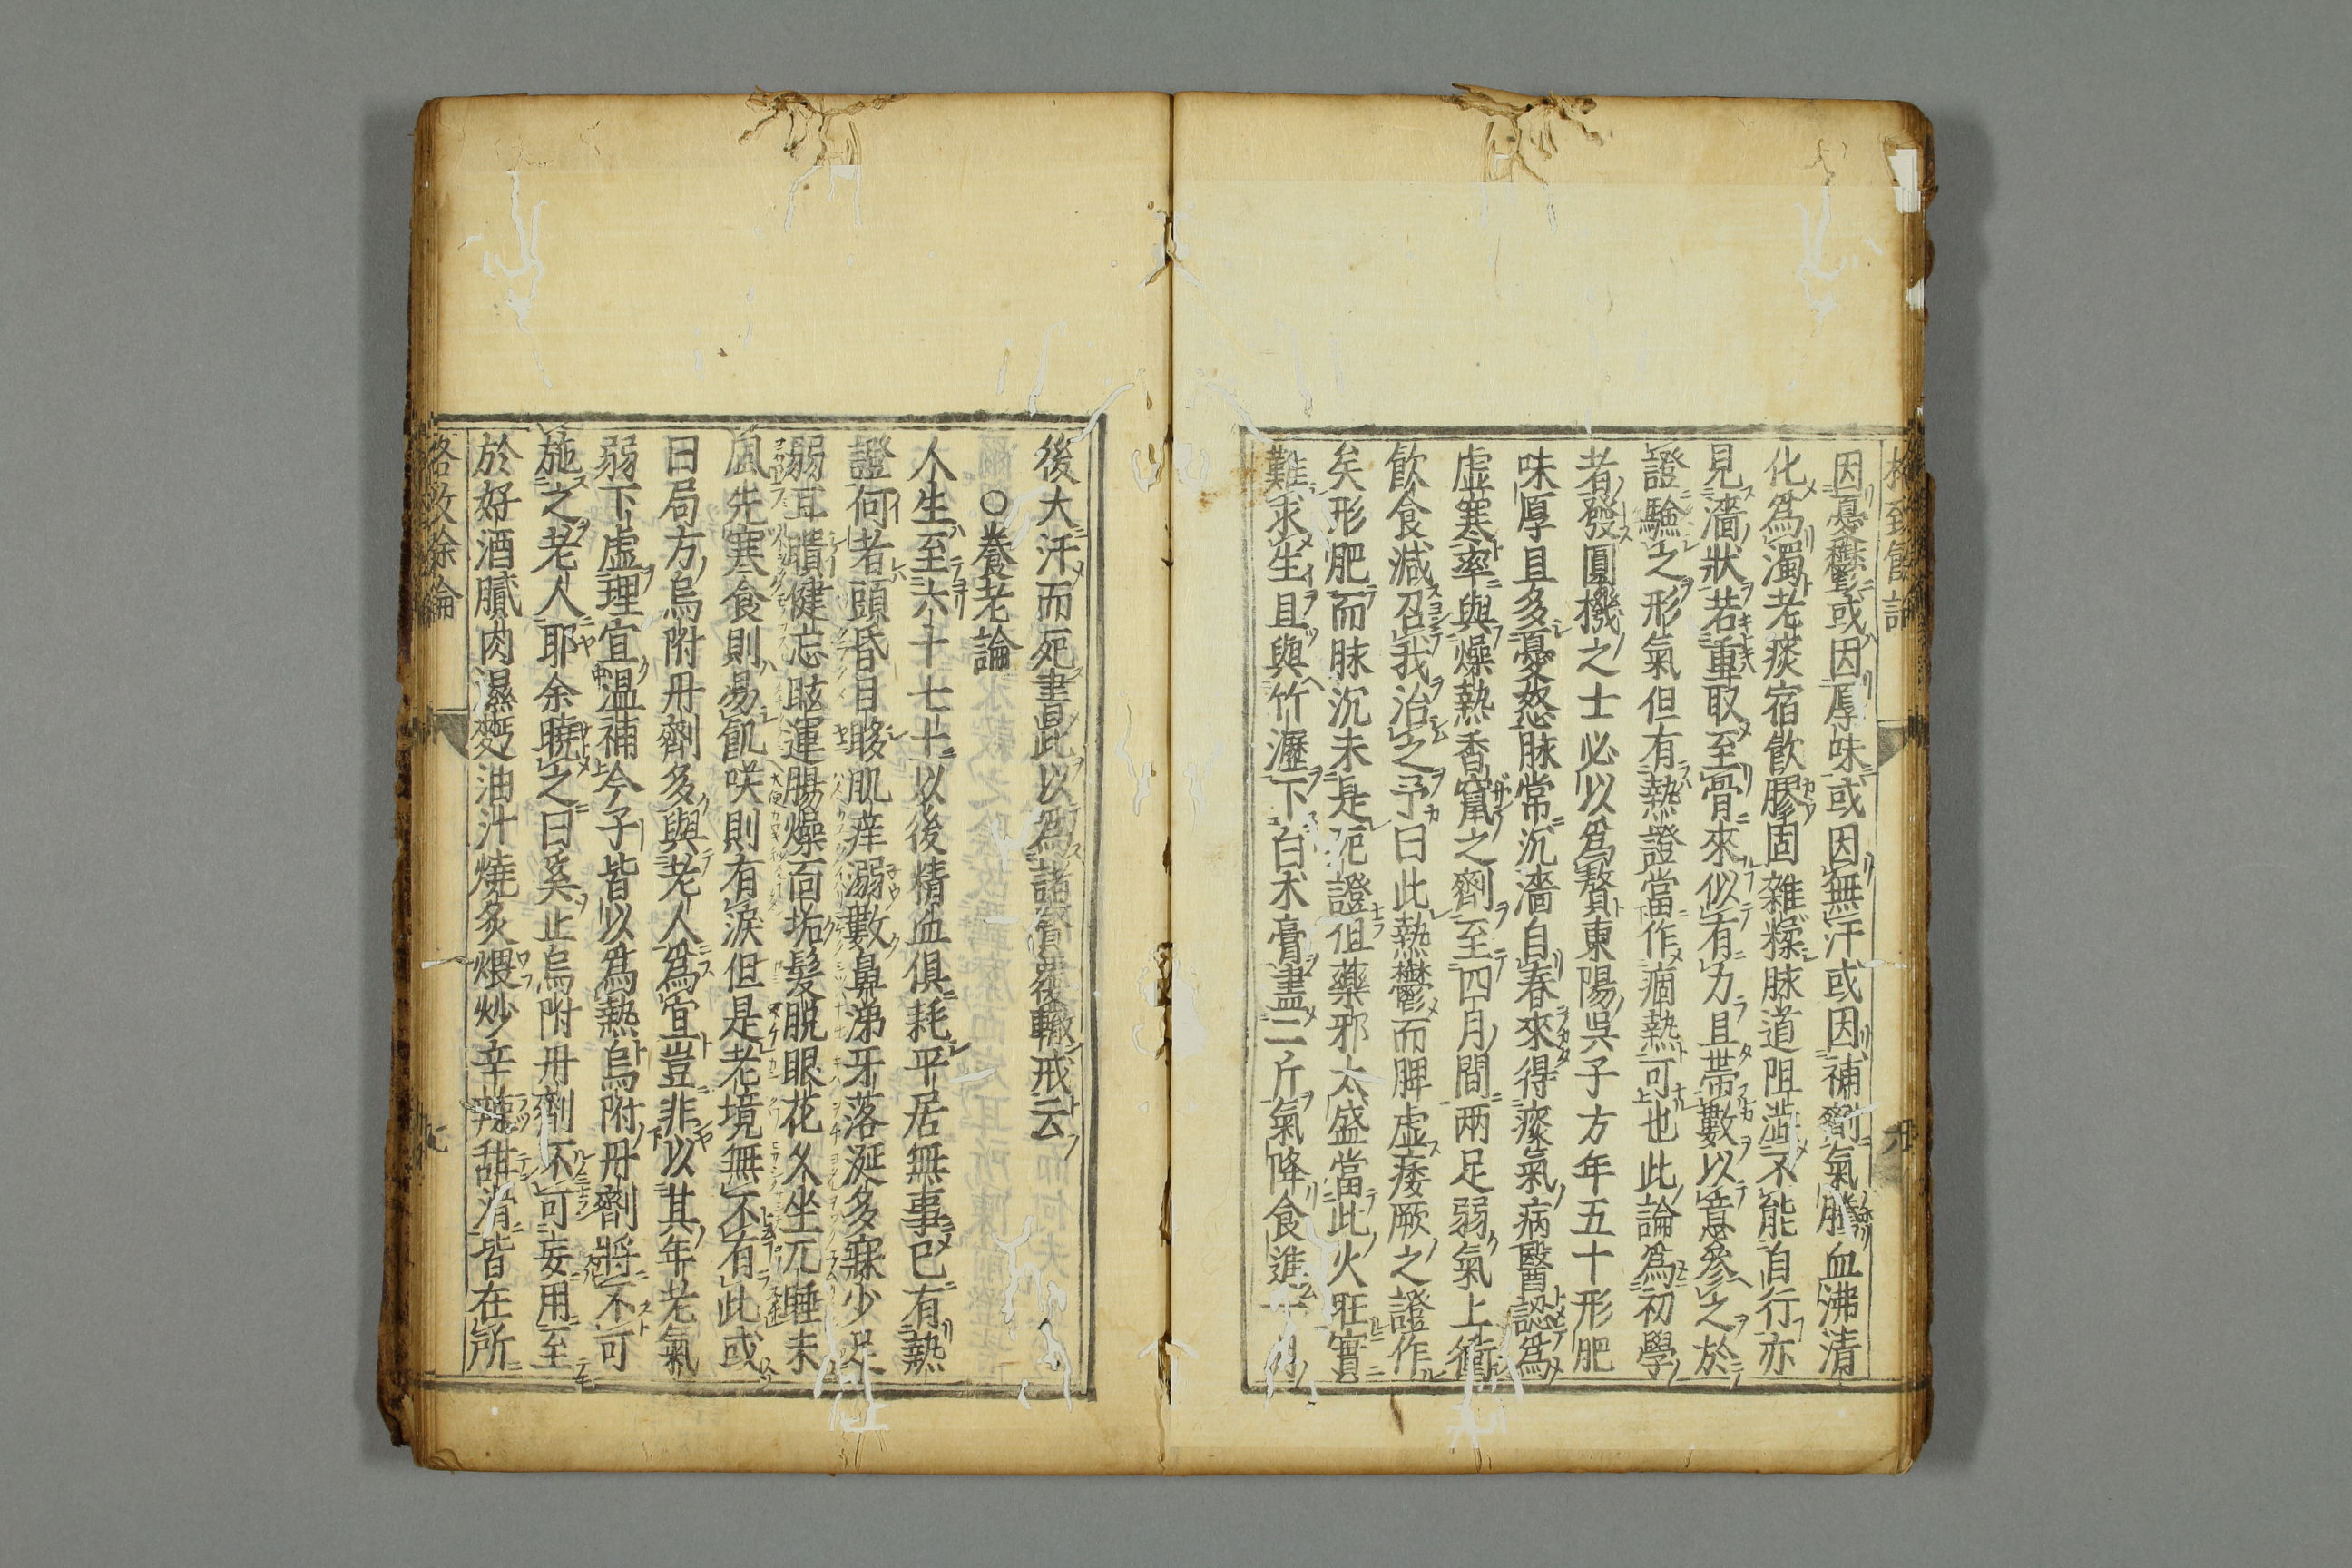 因憂鬱或因厚味或因無汗或因補劑氣騰血沸清
化爲濁老痰宿飮膠固雜糅脉道阻澁不能自行亦
見濇狀若重取至骨來似有力且帶數以意參之於
證驗之形氣但有熱證當作痼熱可也此論爲初學
者發圓機之士必以爲贅東陽呉子方年五十形肥
味厚且多憂怒脉常沉濇自春來得痰氣病醫認爲
虛寒率與燥熱香竄之劑至四月間兩足弱氣上衝
飮食減召我治之予曰此熱鬱而脾虛痿厥之證作
矣形肥而脉沉未是死證但藥邪太盛當此火旺實
難求生且與竹瀝下白术膏盡二斤氣降食進一月
後大汗而死書此以爲諸賢覆轍戒云
○養老論
人生至六十七十以後精血俱耗平居無事已有熱
證何者頭昏目眵肌痒溺數鼻涕牙落涎多寐少足
弱耳聵健忘眩運腸燥面垢髮脫眼花久坐兀睡未
風先寒食則易飢咲則有淚但是老境無不有此或
曰局方烏附丹劑多與老人爲宜豈非以其年老氣
弱下虛理宜溫補今子皆以爲熱烏附丹劑將不可
施之老人耶余曉之曰奚止烏附丹劑不可妄用至
於好酒膩肉濕麪油汁燒炙煨炒辛辣甜滑皆在所
格致餘論